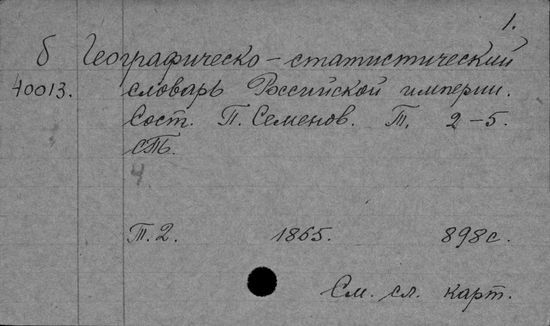 1.
б Географическо-статистический
40013. словарь Российской империи.
Сост. П. Семенов. Т. 2-5.
СПб.
4
Т. 2. 1865. 898с.
См. сл. карт.